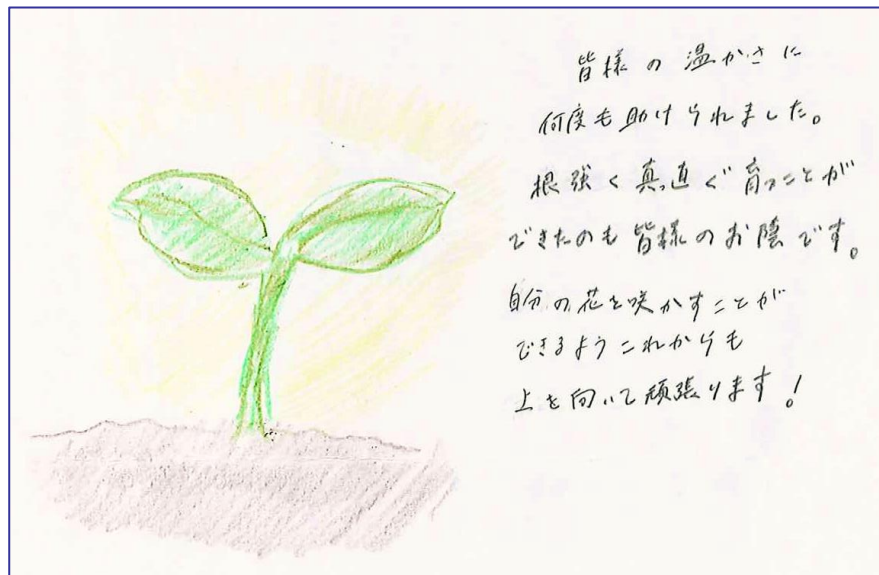 皆様の温かさに
何度も助けられました。
根強く真っ直ぐ育つことが
できたのも皆様のお陰です。
自分の花を咲かすことが
できるようこれからも
上を向いて頑張ります!